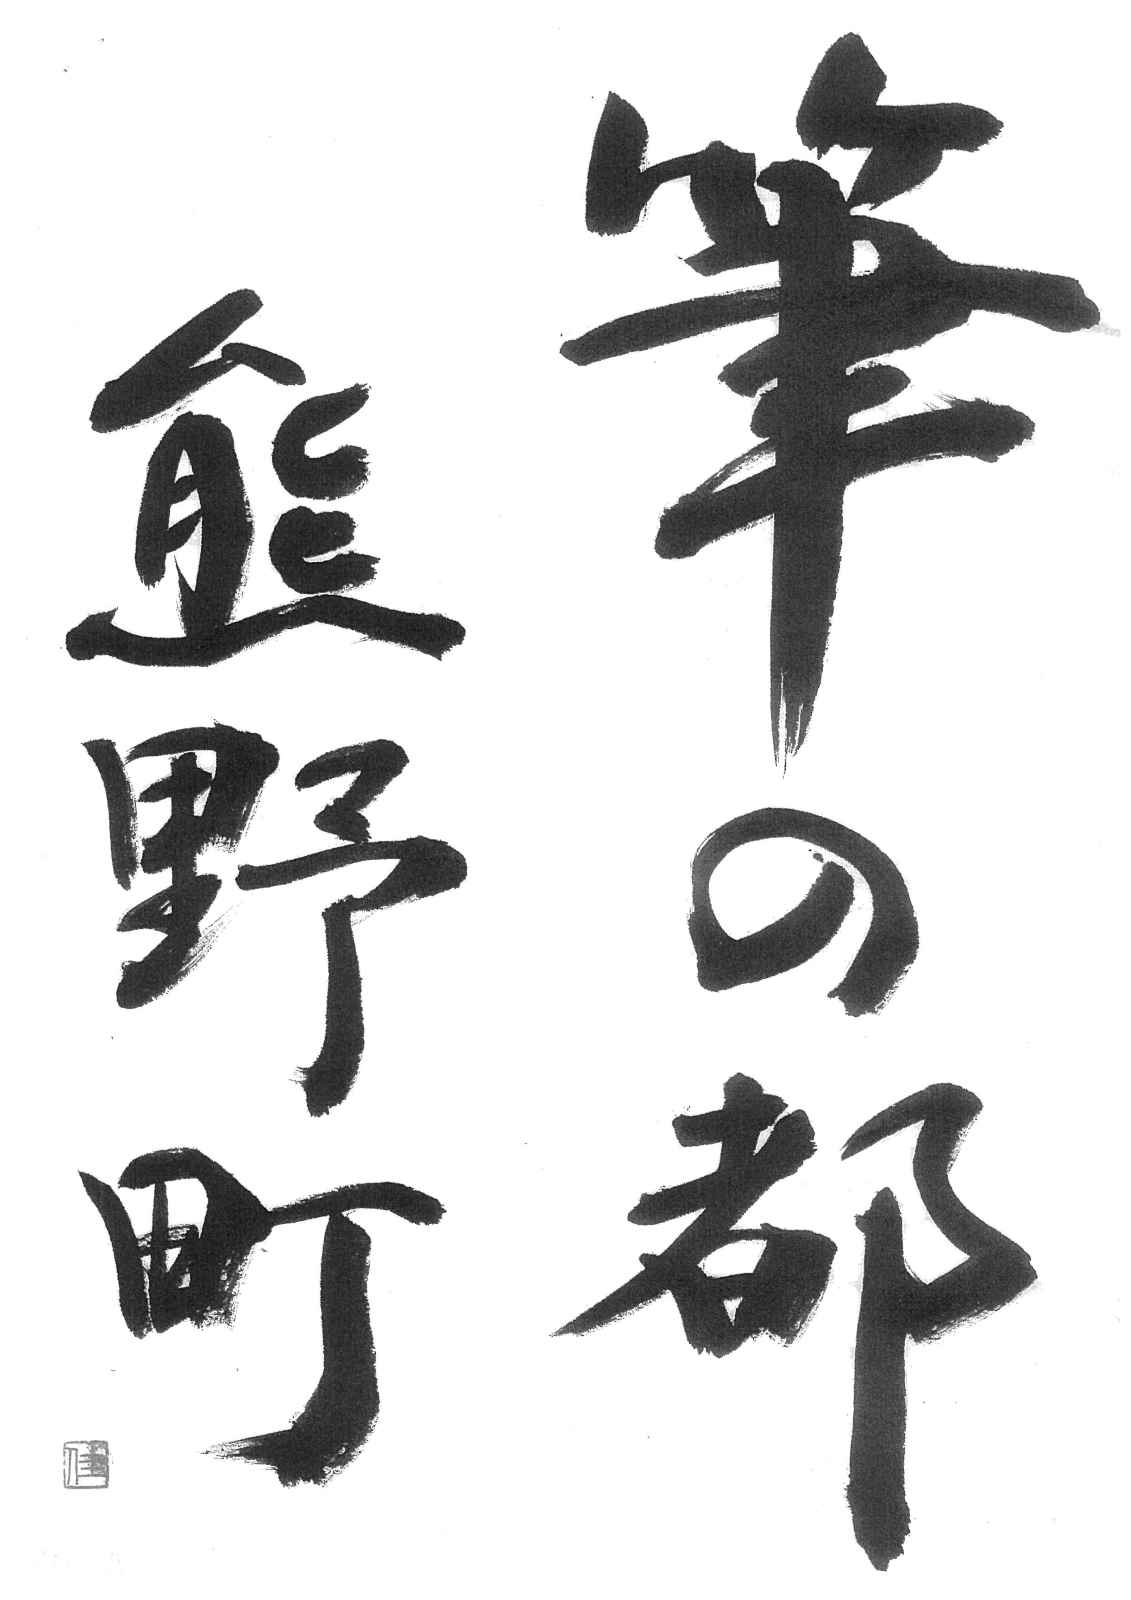 筆の都
熊野町